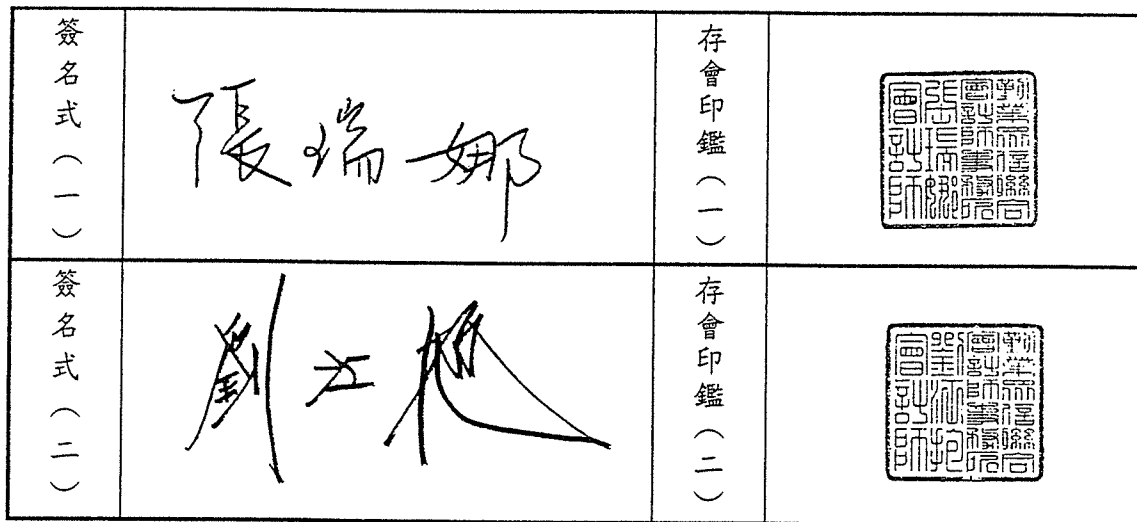 簽名式(一)
張瑞娜
存會印鑑(一)
勤業眾信聯合
會計師事務所
張瑞娜
會計師
簽名式(二)
劉江抱
存會印鑑(二)
勤業眾信聯合
會計師事務所
劉江抱
會計師